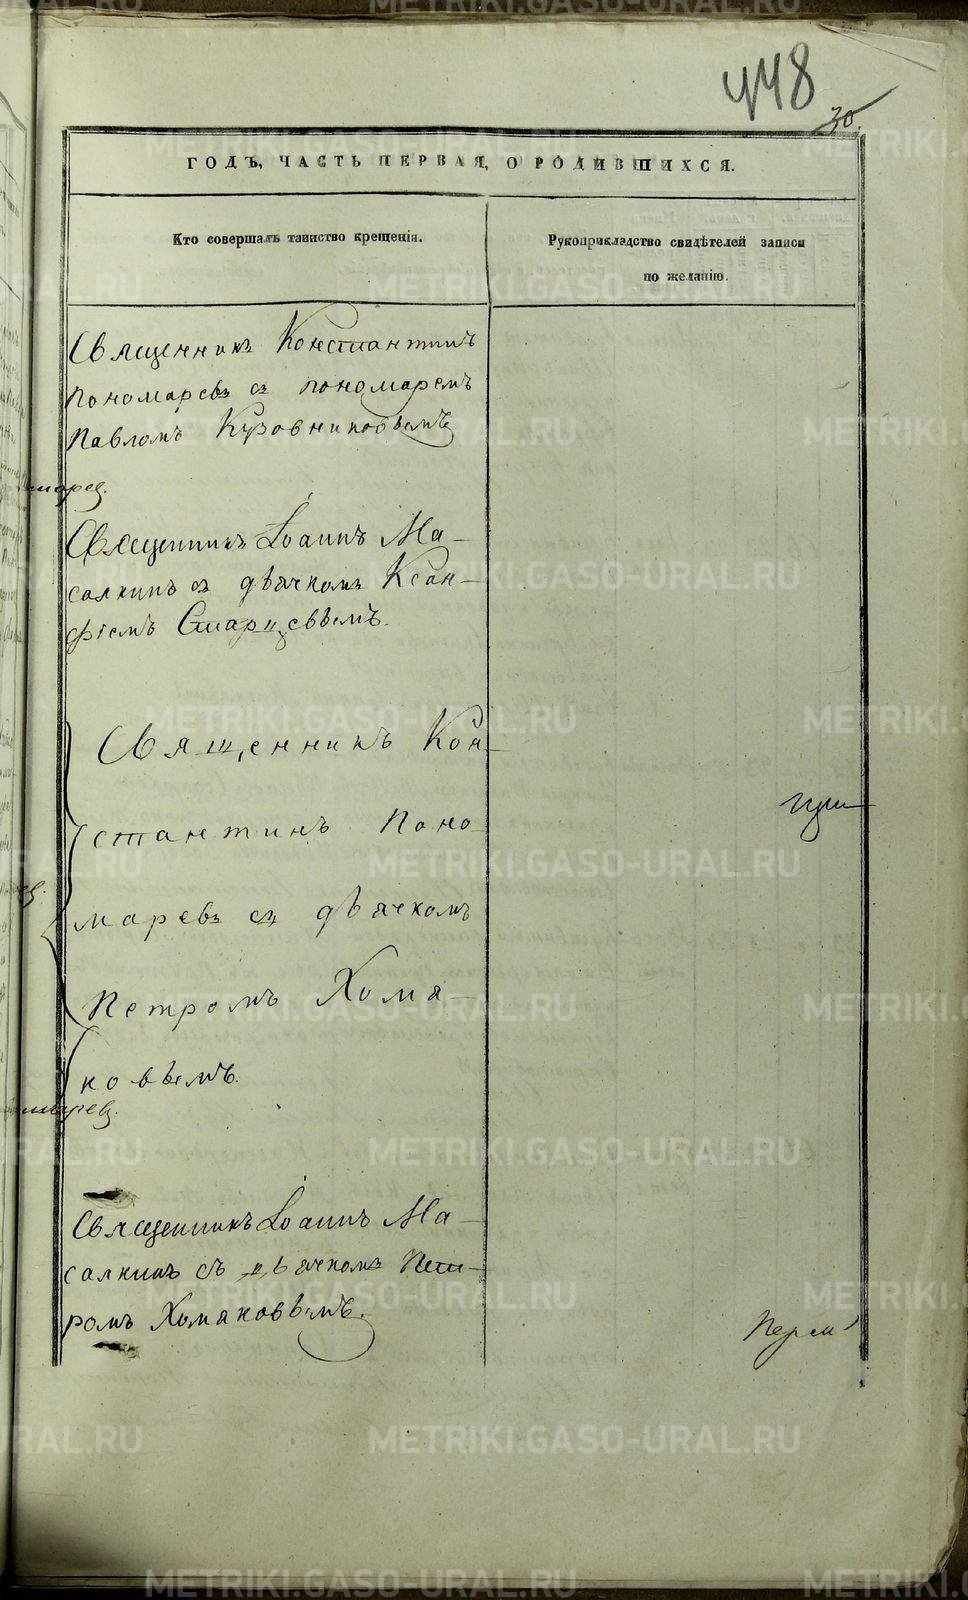 448
30.
ГОДЪ, ЧАСТЬ ПЕРВАЯ, О РОДИВШИХСЯ.
Кто совершалъ таинство крещенія.
Рукоприкладство свидѣтелей записи
по желанію.
Священникъ Константинъ
Пономаревъ съ пономаремъ
Павломъ Кузовниковымъ
Священникъ Іоаннъ Ма-
салкинъ съ дьячкомъ Ксан-
фіемъ Старцевымъ.
Священникъ Кон-
стантинъ Поно
маревъ съ дьячкомъ
Петромъ Хомя-
ковымъ.
Священникъ Іоаннъ Ма-
салкинъ съ дьячкомъ Пет-
ромъ Хомяковымъ.
METRIKI.GASO-URAL.RU